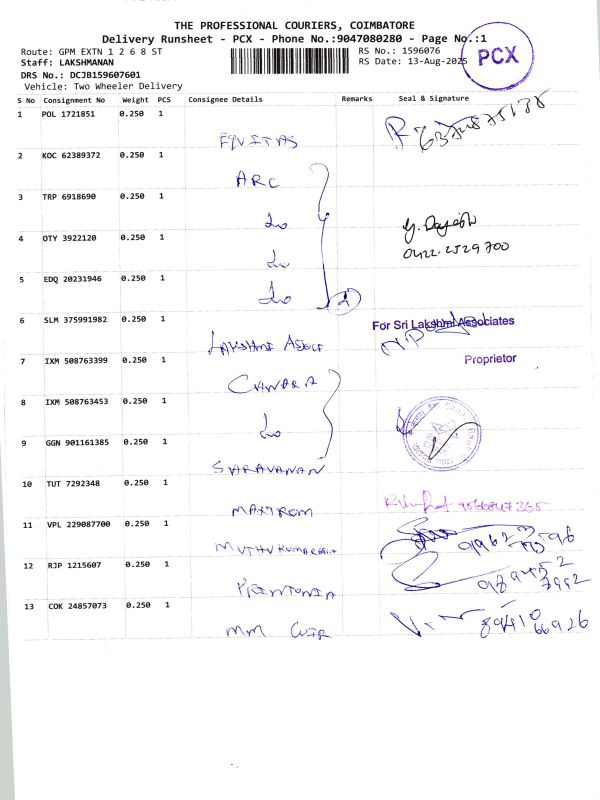 THE PROFESSIONAL COURIERS, COIMBATORE
Delivery Runsheet - PCX - Phone No.:9047080280 - Page No.:1
Route: GPM EXTN 1 2 6 8 ST
RS No.: 1596076
PCX
Staff: LAKSHMANAN
RS Date: 13-Aug-2025
DRS No.: DCJB159607601
Vehicle: Two Wheeler Delivery
S No Consignment No Weight PCS Consignee Details Remarks Seal & Signature
1 POL 1721851 0.250 1
EQVITAS
2 KOC 62389372 0.250 1
ARC
3 TRP 6918690 0.250 1
Do
4 OTY 3922120 0.250 1
0422.2529700
Do
5 EDQ 20231946 0.250 1
Do
6 SLM 375991982 0.250 1
For Sri Lakshmi Associates
LAKSHMI ASSOCI
7 IXM 508763399 0.250 1
Proprietor
CHWARA
8 IXM 508763453 0.250 1
Do
9 GGN 901161385 0.250 1
SARAVANAN
10 TUT 7292348 0.250 1
MAXTROM
11 VPL 229087700 0.250 1
MUTHUKUMARAN
12 RJP 1215607 0.250 1
PRINTONIA
13 COK 24857073 0.250 1
MM